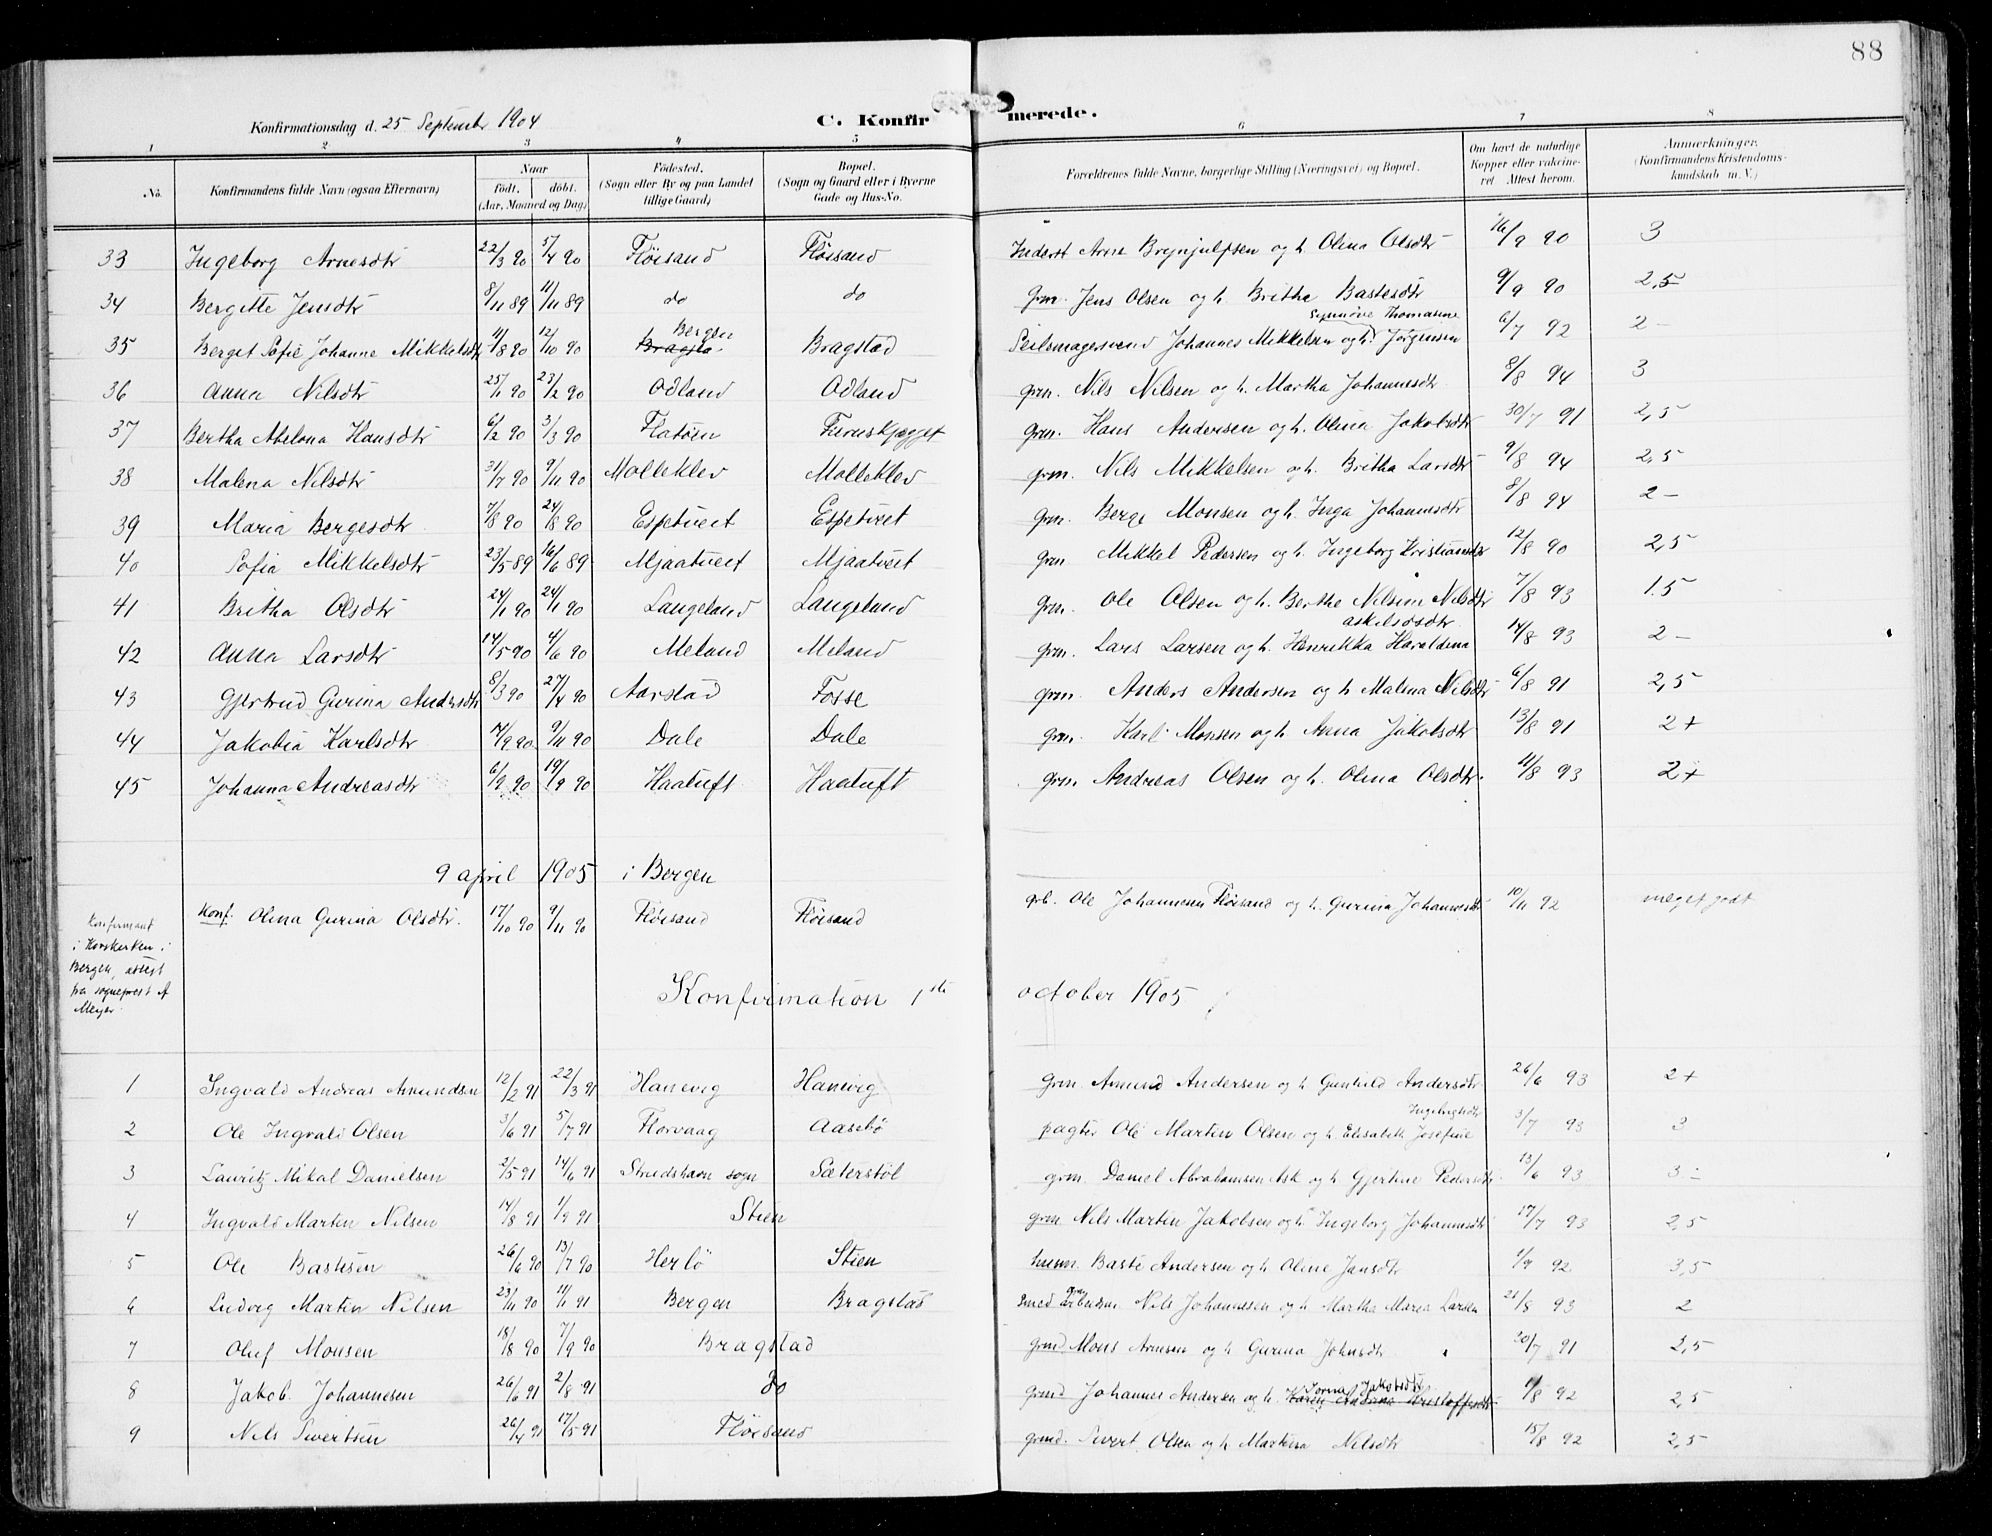 88
Konfirmationsdag d. 25 September 1904 C. Konfirmerede.
1 2 3 4 5 6 7 8
No. Konfirmandens fulde Navn (ogsaa Efternavn) Naar født. døbt. (Aar, Maaned og Dag) Fødested. (Sogn eller By og paa Landet tillige Gaard) Bopæl. (Sogn og Gaard eller i Byerne Gade og Hus-No. Forældrenes fulde Navne, borgerlige Stilling (Næringsvei) og Bopæl. Om havt de naturlige Kopper eller vakcineret. Attest herom. Anmærkninger. (Konfirmandens Kristendomskundskab m. V.)
33 Ingeborg Arnesdtr 22/3 90 5/4 90 Fløisand Fløisand Inderst Arne Brynjulfsen og h. Olina Olsdtr 16/9 90 3
34 Bergitte Jensdtr 8/11 89 11/11 89 do do grm. Jens Olsen og h. Britha Bastesdtr 9/9 90 2,5
35 Berget Sofie Johanne Mikkelsdtr 11/8 90 12/10 90 Bergen Bragstad Seilmagersvend Johannes Mikkelsen og h. Synnöve Thomasine Jørgensen 6/7 92 2-
36 Anna Nilsdtr 25/1 90 23/2 90 Odland Odland grm. Nils Nilsen og h. Martha Johannesdtr 8/8 94 3
37 Bertha Abelona Hansdtr 6/2 90 3/3 90 Flatøen Furuskjegget grm. Hans Andersen og h. Olina Jakobsdtr 30/7 91 2,5
38 Malena Nilsdtr 31/7 90 9/11 90 Molleklev Molleklev grm. Nils Mikkelsen og h. Britha Larsdtr 9/8 94 2,5
39 Maria Bergesdtr 7/8 90 24/8 90 Espetveit Espetvet grm. Berge Monsen og h. Inga Johannesdtr 8/8 94 2-
40 Sofia Mikkelsdtr 23/5 89 16/6 89 Mjaatveit Mjaatveit grm Mikkel Pedersen og h. Ingeborg Kristiansdtr 12/8 90 2,5
41 Britha Olsdtr 24/1 90 24/1 90 Langeland Langeland grm. Ole Olsen og h. Berthe Nilsdtr 7/8 93 1.5
42 Anna Larsdtr 14/5 90 4/6 90 Meland Meland grm. Lars Larsen og h. Henrikka Haraldina askilsdsdtr 14/8 93 2-
43 Gjertrud Gurina Andersdtr 8/3 90 27/4 90 Aarstad Fosse grm. Anders Andersen og h Malena Nilsdtr 6/8 91 2,5
44 Jakobia Karlsdtr 14/9 90 9/11 90 Dale Dale grm. Karl Monsen og h. Anna Jakobsdtr 13/8 91 2+
45 Johanna Andreasdtr 6/9 90 19/9 90 Haatuft Haatuft grm. Andreas Olsen og h. Olina Olsdtr. 11/8 93 2+
9 april 1905 i Bergen
Konf. Olina Gurina Olsdtr. 17/10 90 9/11 90 Fløisand Fløisand grb. Ole Johannesen Fløisand og h. Gurina Johannesdtr 10/11 92 meget godt
Konfirmant
i Korskirken i
Bergen, attest
fra sogneprest
Meyer
Konfirmation 1ste october 1905
1 Ingvald Andreas Amundsen 12/2 91 22/3 91 Hanevig Hanevig grm. Amund Andersen og h Gunhild Andersdtr 26/6 93 2+
2 Ole Ingvald Olsen 3/6 91 5/7 91 Florvaag Aasebø pagter Ole Martin Olsen og h. Elisabeth Josefine Ingebrigtsdtr 3/7 93 3
3 Lauritz Mikal Danielsen 2/5 91 14/6 91 Strudshavn sogn Sæterstøl grm. Daniel Abrahamsen Ask og h. Gjertine Pedersdtr 13/6 93 3-
4 Ingvald Martin Nilsen 14/8 91 1/9 91 Stien grm. Nils Martin Jakobsen og h Ingeborg Johannesdtr 17/7 93 2,5
5 Ole Bastesen 26/6 90 13/7 90 Herlø Stien husm. Baste Andersen og h. Oline Jansdtr 1/9 92 3,5
6 Ludvig Martin Nilsen 23/11 90 11/1 91 Bergen Bragstad Smed Nils Johannesen og h. Martha Maria Larsen 21/8 93 2
7 Oluf Monsen 18/8 90 7/9 90 Bragstad grmd Mons Arnesen og h Gurina Johnsdtr 30/7 91 2,5
8 Jakob Johannesen 26/6 91 2/8 91 do grmd Johannes Andersen og h. Jorina Jakobsdtr 1/8 92 2,5
9 Nils Sivertsen 26/4 91 17/5 91 Fløisand grmd. Sivert Olsen og h Martina Nilsdtr 15/8 92 2,5